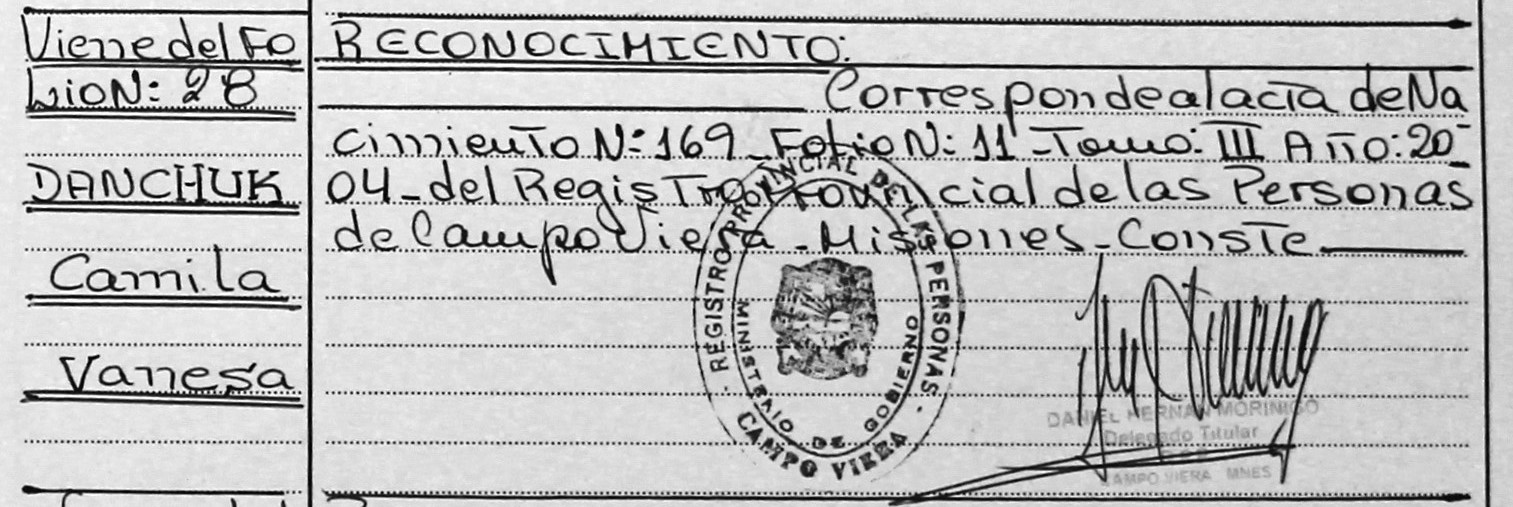 Viene del Fo
lio N: 28
DANCHUK
Camila
Vanesa
RECONOCIMIENTO:
Corresponde a la acta de Na
cimiento N: 169 - Folio N: 11 - Tomo: III Año: 20-
04 - del Registro Provincial de las Personas
de Campo Viera - Misiones - Conste
REGISTRO PROVINCIAL DE LAS PERSONAS
MINISTERIO DE GOBIERNO
CAMPO VIERA
DANIEL HERNAN MORINIGO
Delegado Titular
CAMPO VIERA MNES